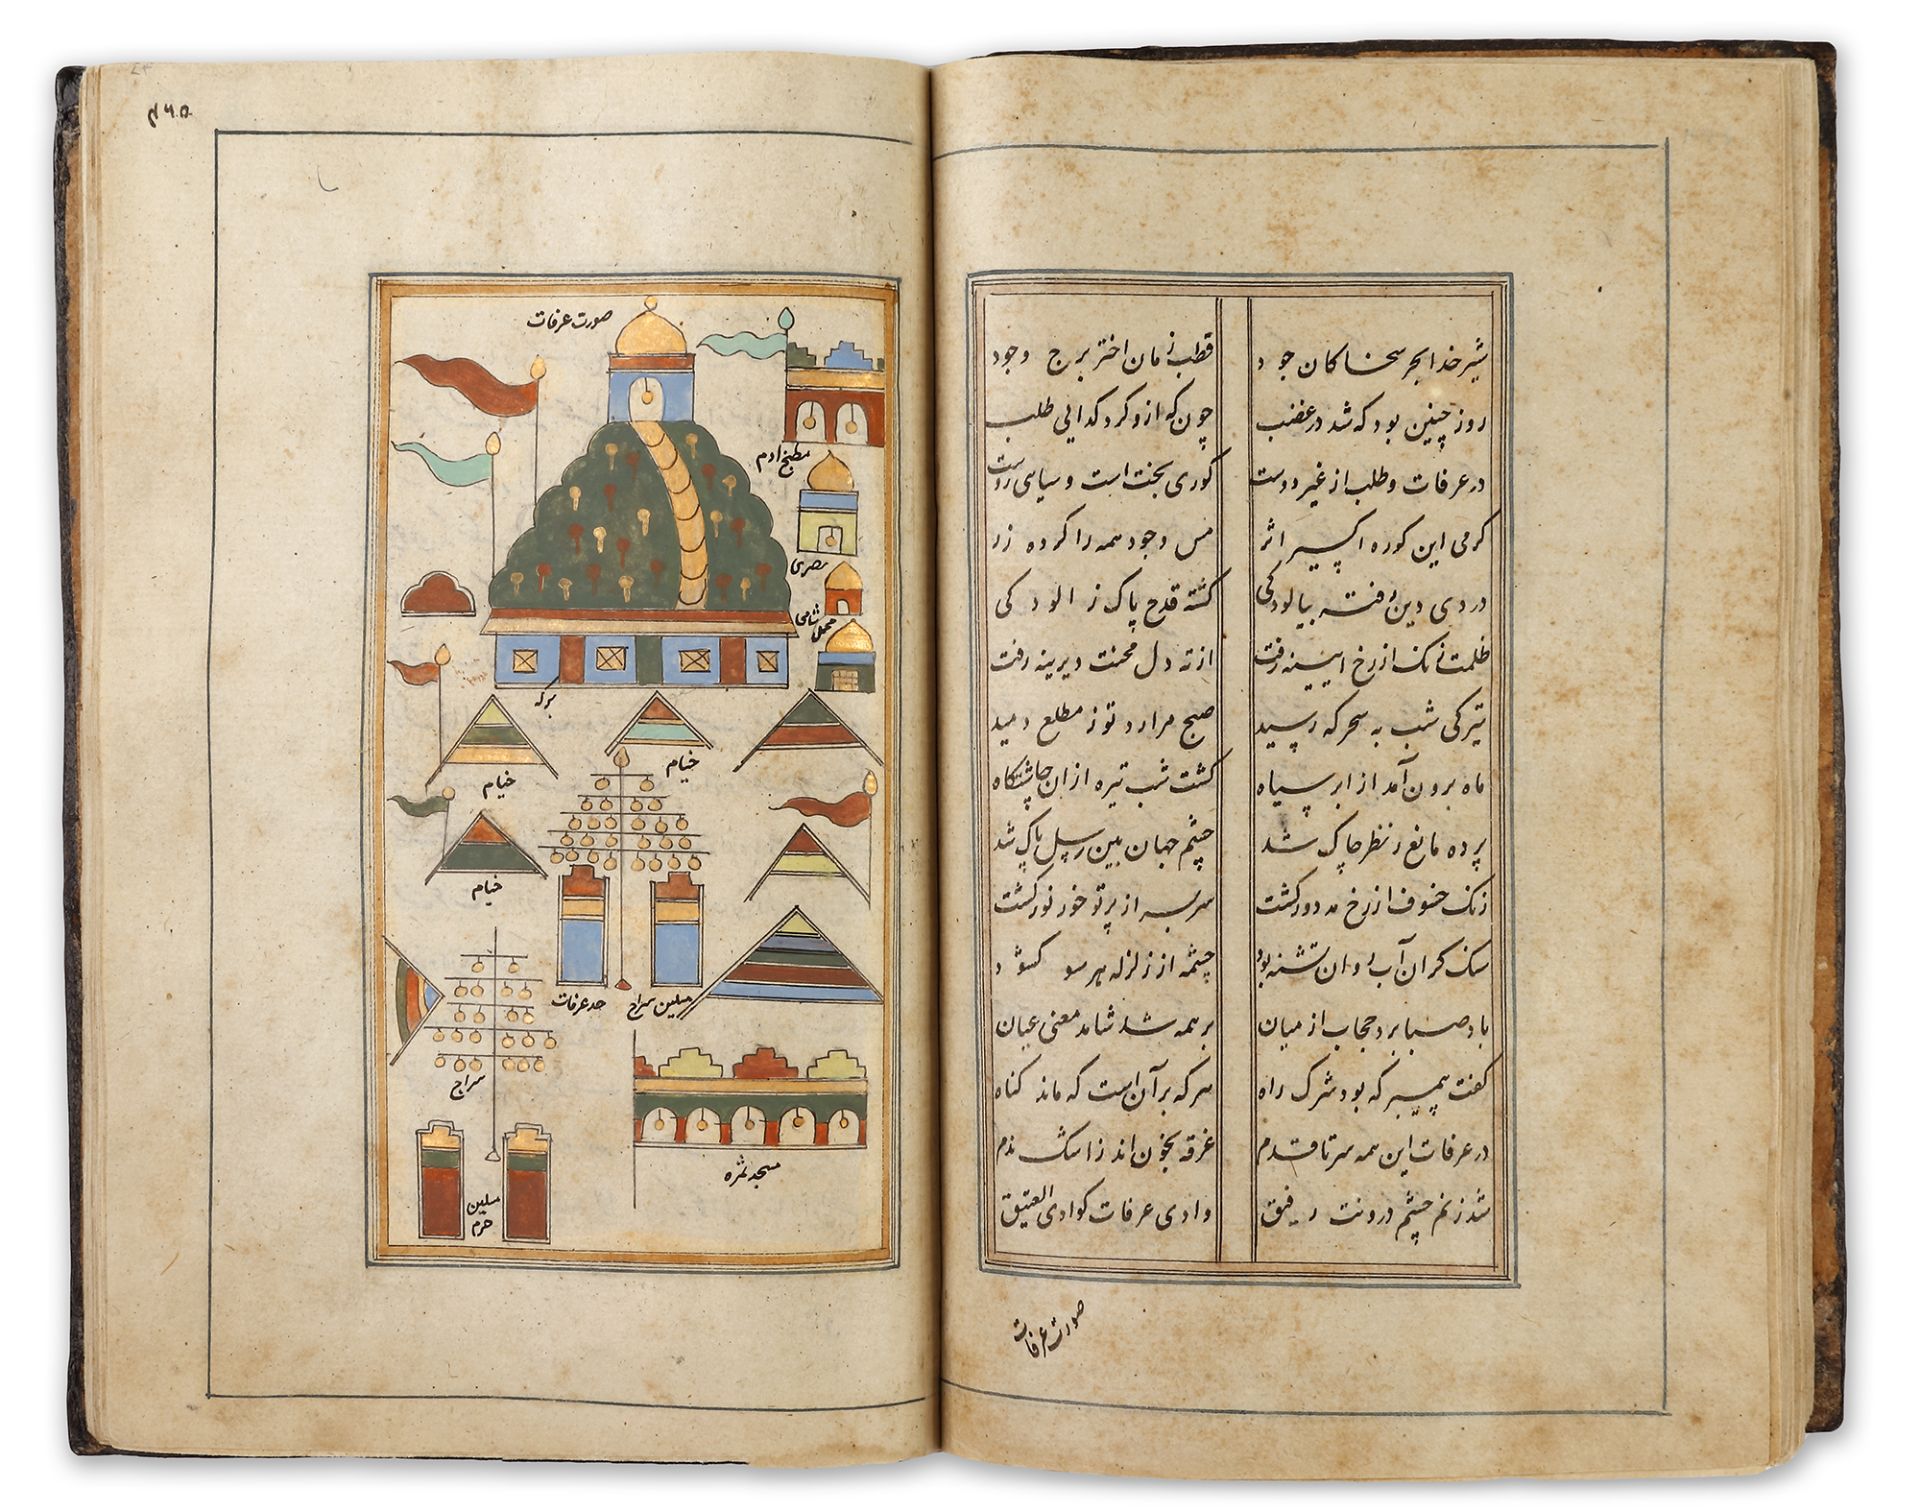 شیر خدا بحر سخا کان جود
قطب زمان اختر برج وجود
روز چنین بود که شد در غضب
چون که ازو کرد گدایی طلب
در عرفات و طلب از غیر دوست
کوری بختست و سیاهی روست
کرمی این کوره اکسیر اثر
مس وجود همه را کرده زر
دردی دین رفته بپالودکی
کشته قدح پاک ز الودکی
ظلمت زنک از رخ ایینه رفت
از ته دل محنت دیرینه رفت
تیرکی شب به سحرکه رسید
صبح مراد تو ز مطلع دمید
ماه برون آمد از ابر سیاه
کشت شب تیره از ان چاشتکاه
پرده مانع ز نظر چاک شد
چشم جهان بین ز سبل پاک شد
زنک خسوف از رخ مه دور کشت
سربسر از پرتو خور نور کشت
سنک کران آب روان تشنه بود
چشمه از زلزله هر سو کشود
باد صبا برد حجاب از میان
بر همه شد شاهد معنی عیان
کفت پیمبر که بود شرک راه
هر که بر آن است که ماند کناه
در عرفات این همه سر تا قدم
غرقه بخون اند ز اشک ندم
شد ز نم چشم درونت رفیق
وادی عرفات کوادی العتیق
صورت عرفات
صورت عرفات
مطبخ ادم
مصری
محمل شامی
برکه
خیام
خیام
خیام
حد عرفات
میلین سراج
سراج
مسجد نمره
میلین
حرم